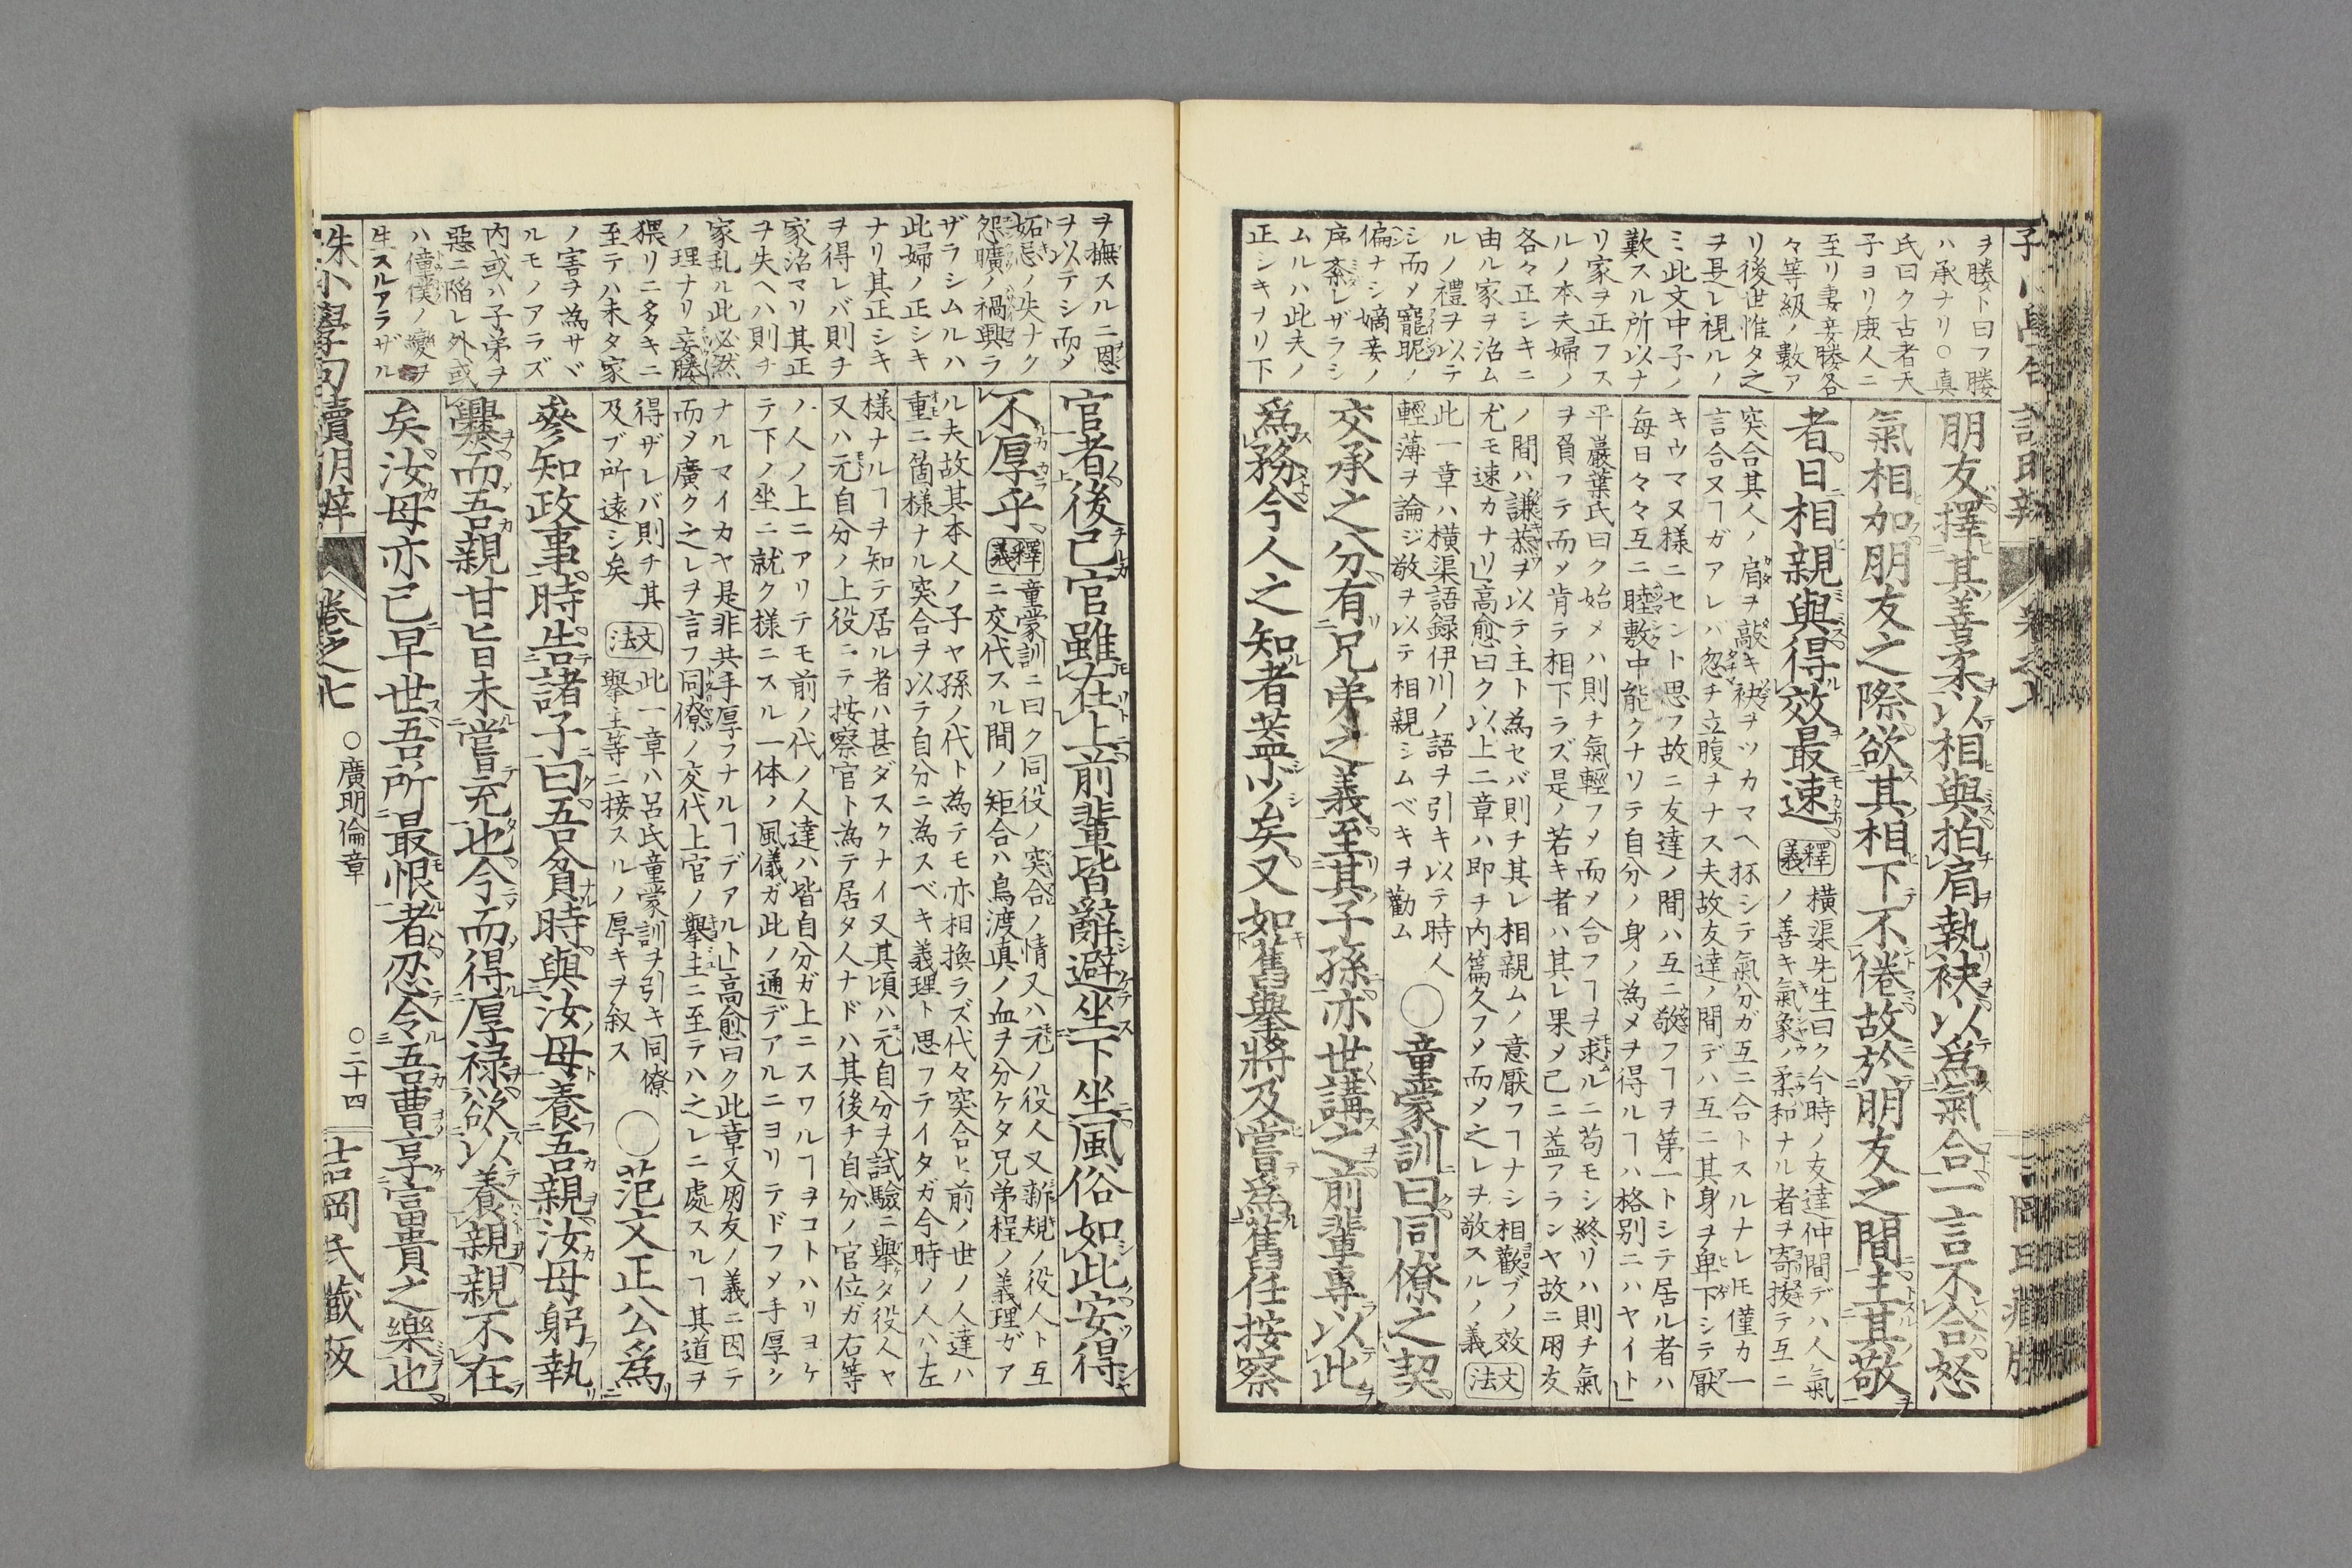 ヲ媵ト曰フ媵
ハ承ナリ○真
氏曰ク古者天
子ヨリ庶人ニ
至リ妻妾媵各
々等級ノ數ア
リ後世惟タ之
ヲ具レ視ルノ
ミ此文中子ノ
歎スル所以ナ
リ家ヲ正フス
ルノ本夫婦ノ
各々正シキニ
由ル家ヲ治ム
ルノ禮ヲ以テ
シ而メ寵昵ノ
偏ナシ嫡妾ノ
序紊レザラシ
ムルハ此夫ノ
正シキナリ下
朋友擇其善柔以相與拍肩執袂以為氣合一言不合怒
氣相加朋友之際欲其相下不倦故於朋友之間主其敬
者日相親與得效最速
釋義
横渠先生曰ク今時ノ友達仲間デハ人氣
ノ善キ氣象ノ柔和ナル者ヲ寄擇テ互ニ
突合其人ノ肩ヲ敲キ袂ヲツカマヘ抔シテ氣分ガ互ニ合トスルナレ𪜈僅カ一
言合ヌヿガアレバ忽チ立腹ヲナス夫故友達ノ間デハ互ニ其身ヲ卑下シテ厭
キウマヌ様ニセント思フ故ニ友達ノ間ハ互ニ敬フヿヲ第一トシテ居ル者ハ
每日々々互ニ睦敷中能クナリテ自分ノ身ノ為メヲ得ルヿハ格別ニハヤイト」
平巖葉氏曰ク始メハ則チ氣輕フメ而メ合フヿヲ求ルニ苟モシ終リハ則チ氣
ヲ負フテ而メ肯テ相下ラズ是ノ若キ者ハ其レ果メ己ニ益アランヤ故ニ朋友
ノ間ハ謙恭ヲ以テ主ト為セバ則チ其レ相親ムノ意厭フヿナシ相歡ブノ效
尤モ速カナリ」高愈曰ク以上二章ハ即チ内篇久フメ而メ之レヲ敬スルノ義
文法
此一章ハ横渠語録伊川ノ語ヲ引キ以テ時人
輕薄ヲ論ジ敬ヲ以テ相親シムベキヲ勸ム
○童蒙訓曰同僚之契
交承之分有兄弟之義至其子孫亦世講之前輩專以此
為務今人之知者蓋少矣又如舊擧將及嘗為舊任按察
ヲ撫スルニ恩
ヲ以テシ而メ
妬忌ノ失ナク
怨曠ノ禍興ラ
ザラシムルハ
此婦ノ正シキ
ナリ其正シキ
ヲ得レバ則チ
家治マリ其正
ヲ失ヘハ則チ
家乱ル此必然
ノ理ナリ妾媵
猥リニ多キニ
至テハ未タ家
ノ害ヲ為サヾ
ルモノアラズ
内或ハ子弟ヲ
惡ニ陷レ外或
ハ僮僕ノ變ヲ
生スルアラザル
官者後己官雖在上前輩皆辭避坐下坐風俗如此安得
不厚乎
釋義
童蒙訓ニ曰ク同役ノ突合ノ情又ハ元ノ役人又新規ノ役人ト互
ニ交代スル間ノ矩合ハ鳥渡真ノ血ヲ分ケタ兄弟程ノ義理ガア
ル夫故其本人ノ子ヤ孫ノ代ト為テモ亦相換ラズ代々突合ヒ前ノ世ノ人達ハ
重ニ箇様ナル突合ヲ以テ自分ニ為スベキ義理ト思フテイタガ今時ノ人ハ左
様ナルヿヲ知テ居ル者ハ甚ダスクナイ又其頃ハ元自分ヲ試驗ニ擧タ役人ヤ
又ハ元自分ノ上役ニテ按察官ト為テ居タ人ナドハ其後チ自分ノ官位ガ右等
ノ人ノ上ニアリテモ前ノ代ノ人達ハ皆自分ガ上ニスワルヿヲコトハリヨケ
テ下ノ坐ニ就ク様ニスル一体ノ風儀ガ此ノ通デアルニヨリテドフメ手厚ク
ナルマイカヤ是非共手厚フナルヿデアルト」高愈曰ク此章又朋友ノ義ニ因テ
而メ廣ク之レヲ言フ同僚ノ交代上官ノ擧主ニ至テハ之レニ處スルヿ其道ヲ
得ザレバ則チ其
及ブ所遠シ矣
文法
此一章ハ呂氏童蒙訓ヲ引キ同僚
擧主等ニ接スルノ厚キヲ叙ス
○范文正公為
參知政事時告諸子曰吾貧時與汝母養吾親汝母躬執
爨而吾親甘旨未嘗充也今而得厚祿欲以養親親不在
矣汝母亦已早世吾所最恨者忍令吾曹享富貴之樂也
朱小學句讀明辨
卷之七
○廣明倫章
○二十四
吉岡氏藏板